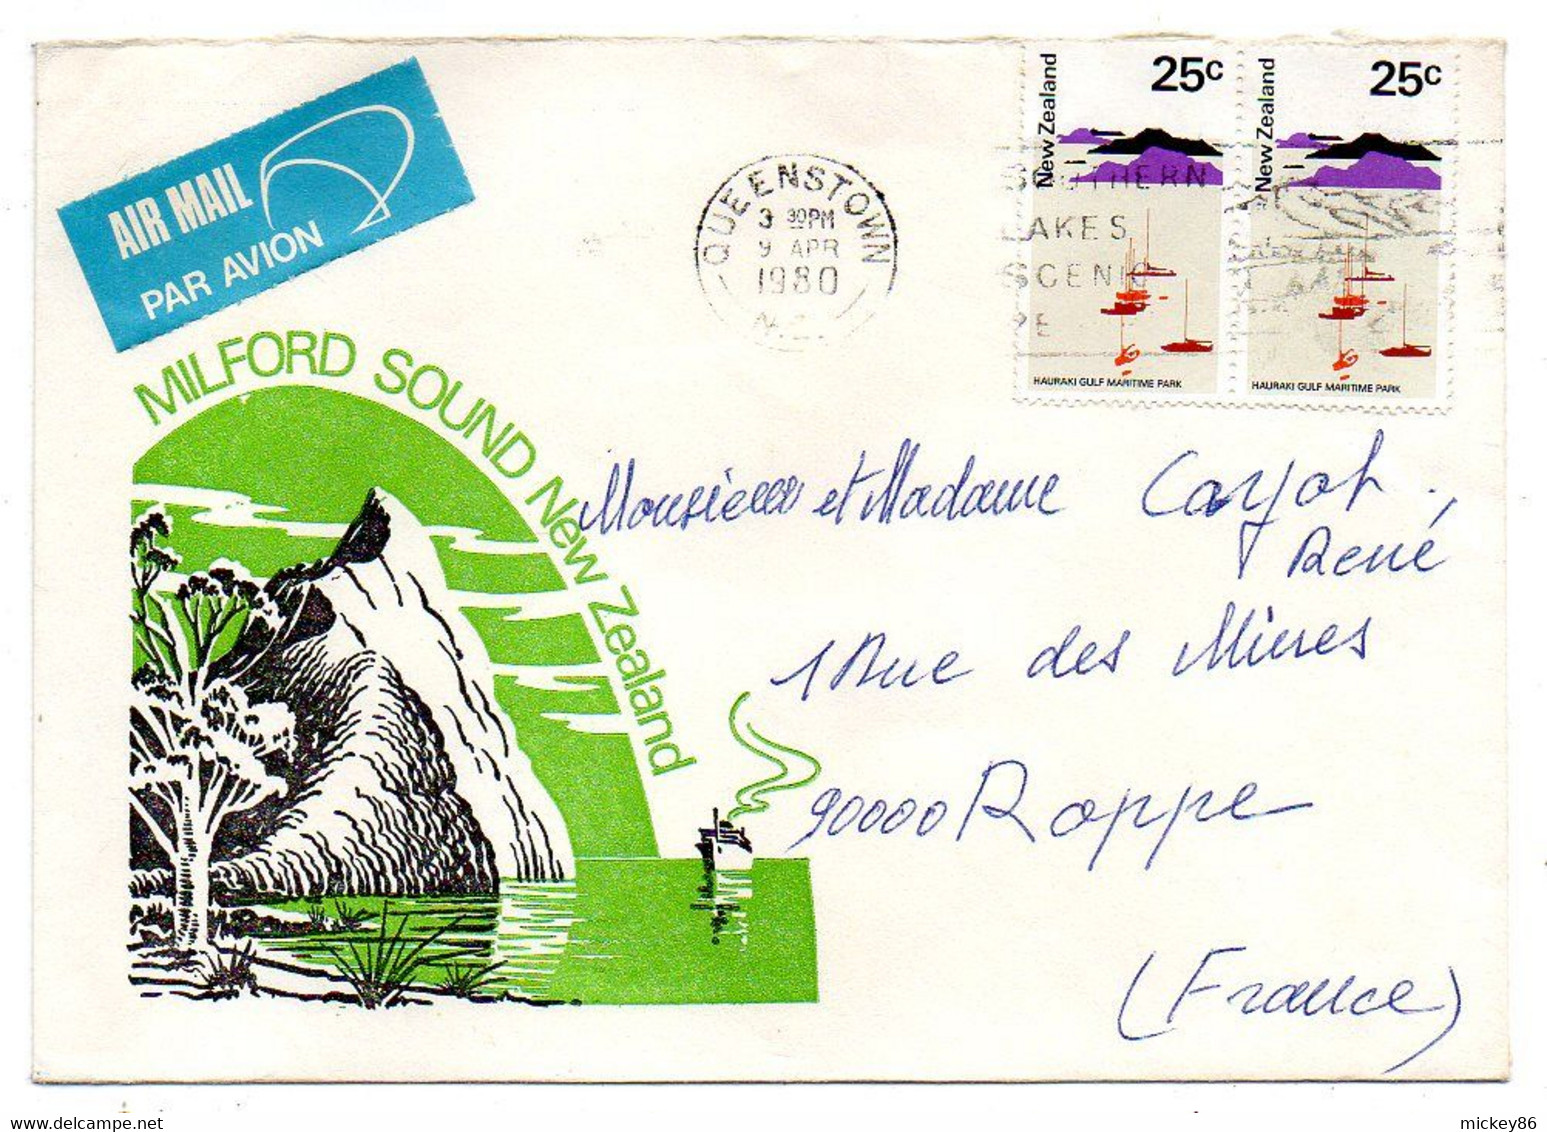 AIR MAIL
PAR AVION
MILFORD SOUND New Zealand
QUEENSTOWN
3 30PM
9 APR
1980
N.Z.
SOUTHERN
LAKES
SCENIC
New Zealand
25c
HAURAKI GULF MARITIME PARK
New Zealand
25c
HAURAKI GULF MARITIME PARK
Monsieur et Madame Cayot,
René
1 Rue des Mines
90000 Roppe
(France)
delcampe.net
mickey86